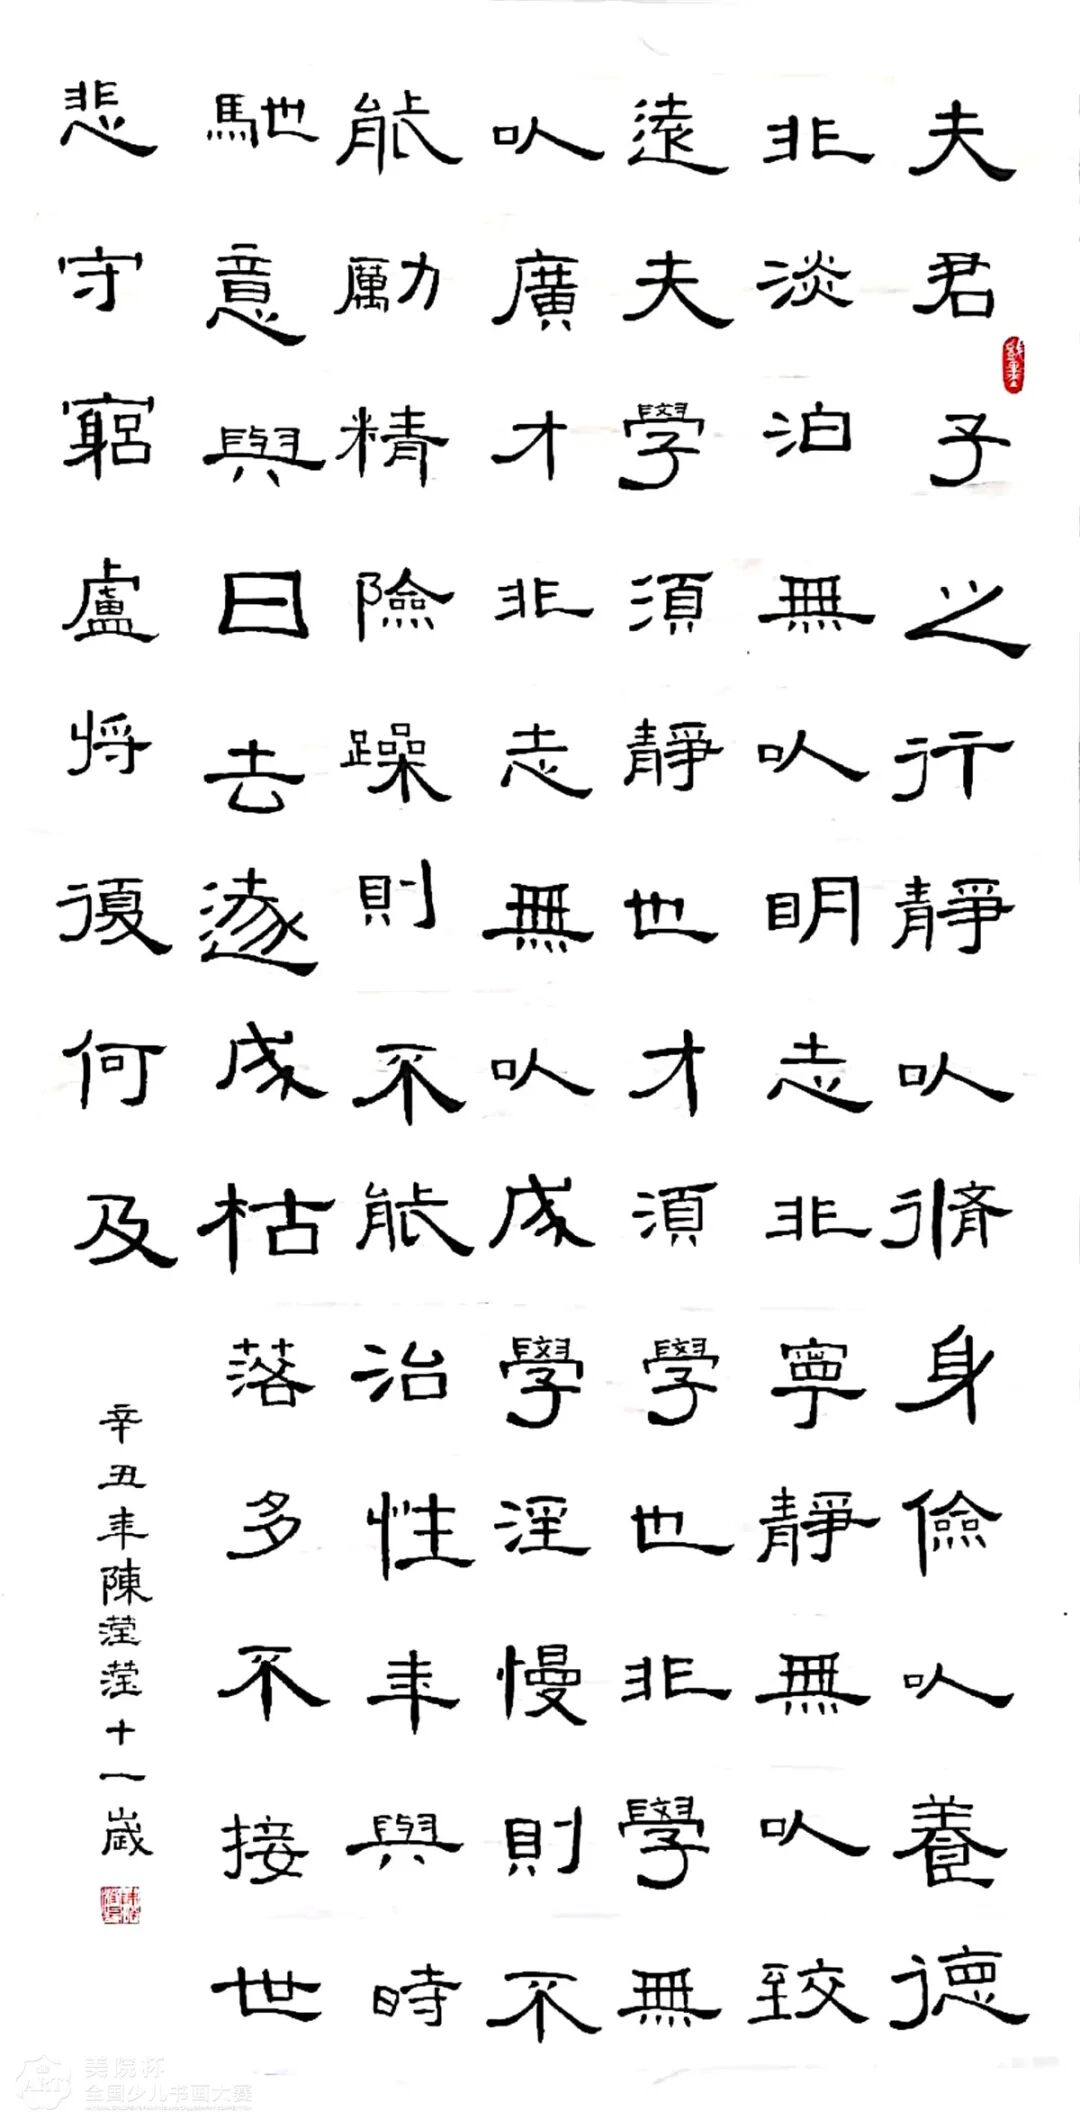 夫君子之行靜以脩身儉以養德
非淡泊無以明志非寧靜無以致
遠夫學須靜也才須學也非學無
以廣才非志無以成學淫慢則不
能勵精險躁則不能治性年與時
馳意與日去遂成枯落多不接世
悲守窮盧將復何及
辛丑年陳滢滢十一歲
美院杯
全国少儿书画大赛